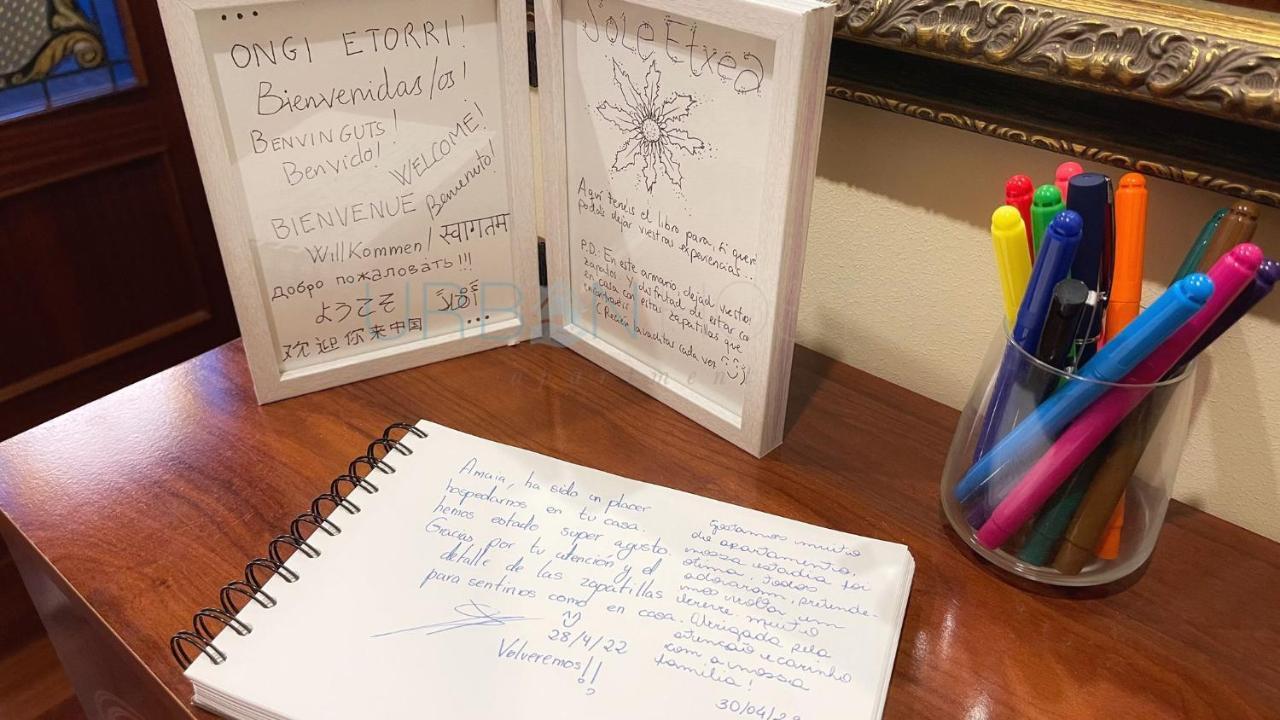 ONGI ETORRI!
Bienvenidas/os!
BENVINGUTS!
Benvido!
WELCOME!
BIENVENUE
Benvenuto!
Willkommen/
स्वागतम
Добро пожаловать!!!
ようこそ
欢迎你来中国
Sole Etxea
Aquí tenéis el libro para, si queréis
podáis dejar vuestras experiencias...
P.D: En este armario, dejad vuestros
zapatos y disfrutad de estar como
en casa con estas zapatillas que
encontraréis
(Recién lavaditas cada vez :))
URBAN
Amaia, ha sido un placer
hospedarnos en tu casa.
hemos estado super agusto.
Gracias por tu atención y el
detalle de las zapatillas
para sentirnos como en casa.
28/4/22
Volveremos!!
Gostamos muito
do apartamento,
nossa estadia foi
ótima. Todos
adoraram, pretende-
mos voltar em
breve muito
Obrigada pela
atenção e carinho
com a nossa
família!
30/04/22